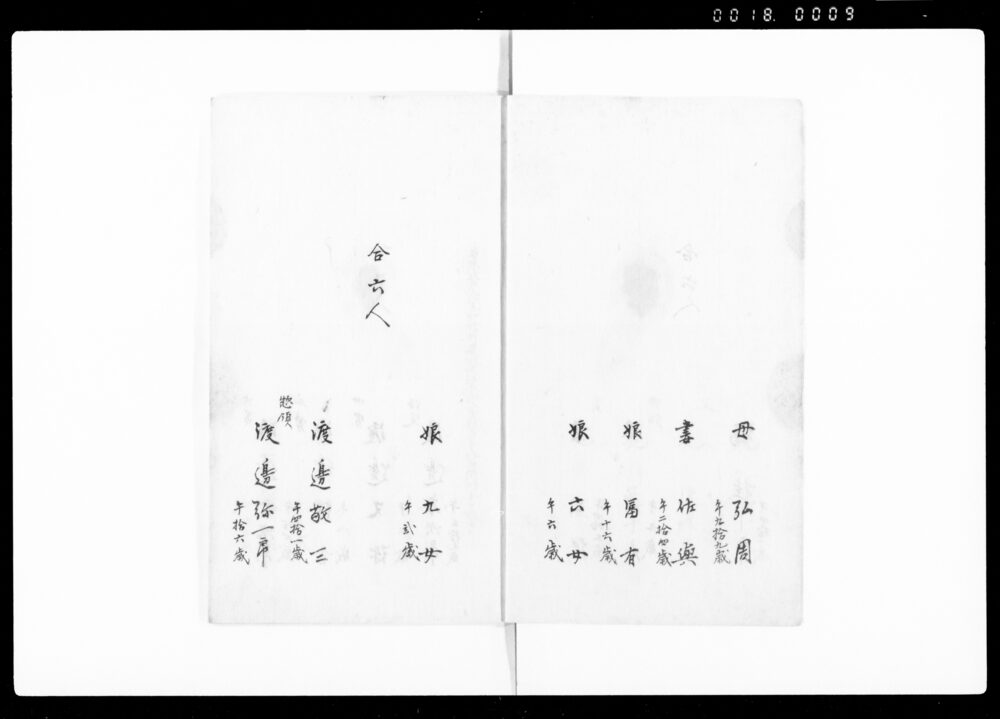 0018. 0009
母 弘周
午五拾九歳
妻 佐與
午二拾四歳
娘 冨有
午十六歳
娘 六女
午六歳
娘 九女
午弐歳
合六人
渡邉敬三
午四拾一歳
惣領
渡邉弥一郎
午拾六歳